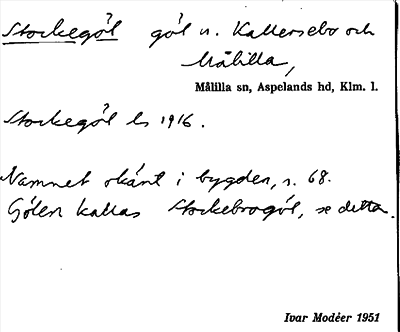 Stockegöl göl n. Kallersebo och
Målilla,
Målilla sn, Aspelands hd, Klm. l.
Stockegöl ls 1916.
Namnet okänt i bygden, s. 68.
Gölen kallas Stockebrogöl, se detta.
Ivar Modéer 1951